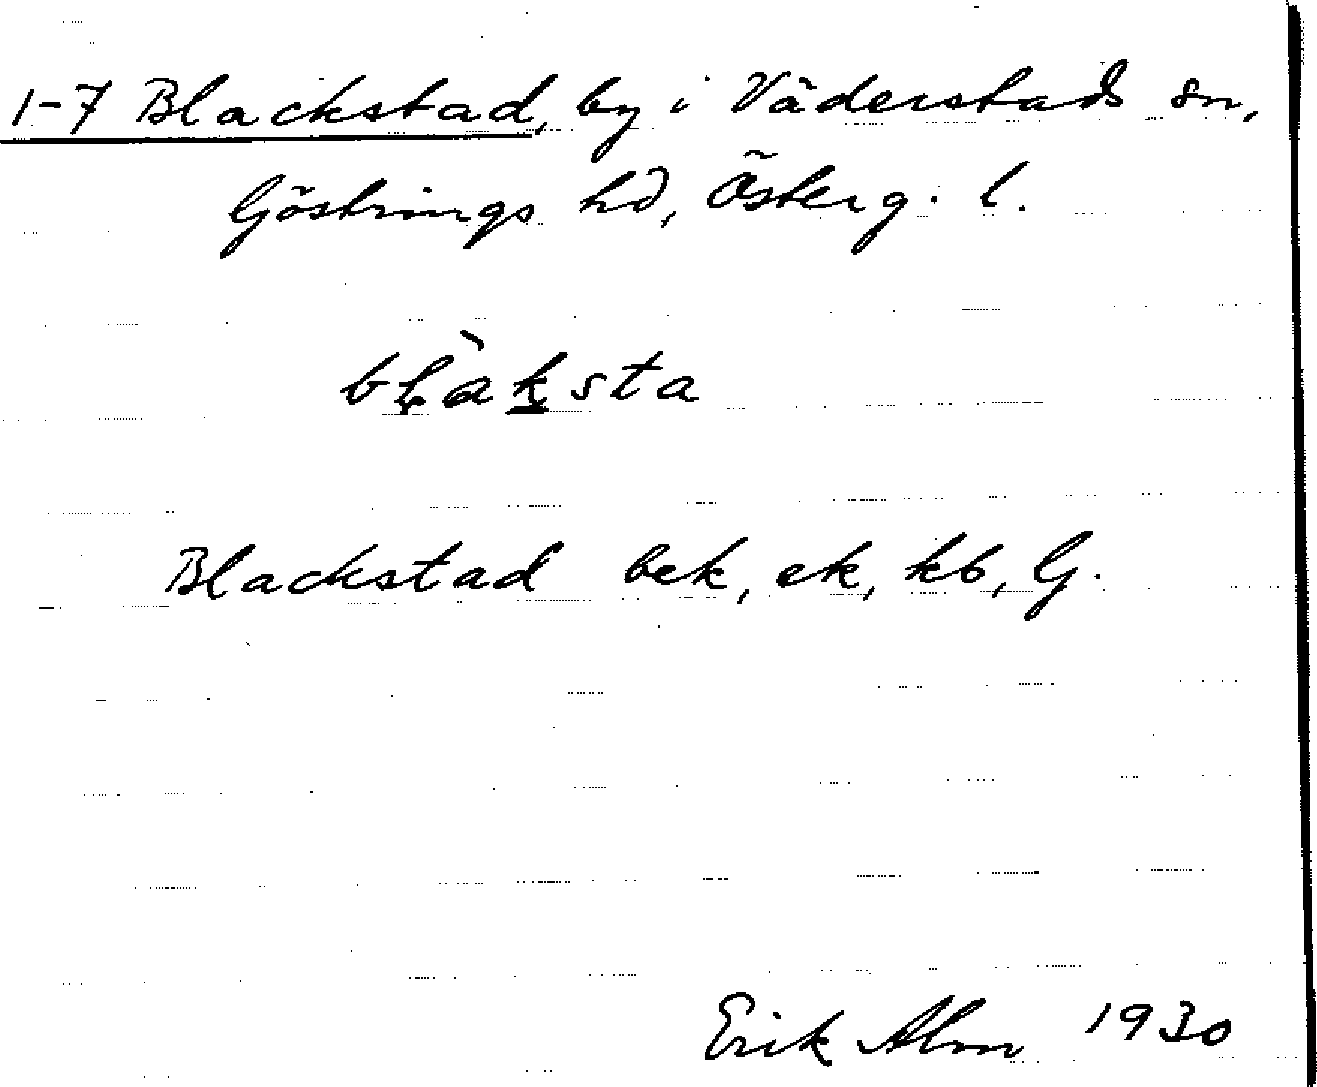 1-7 Blackstad, by i Väderstads sn,
Göstrings hd, Österg. l.
blàksta
Blackstad bek, ek, kb, G.
Erik Alm 1930